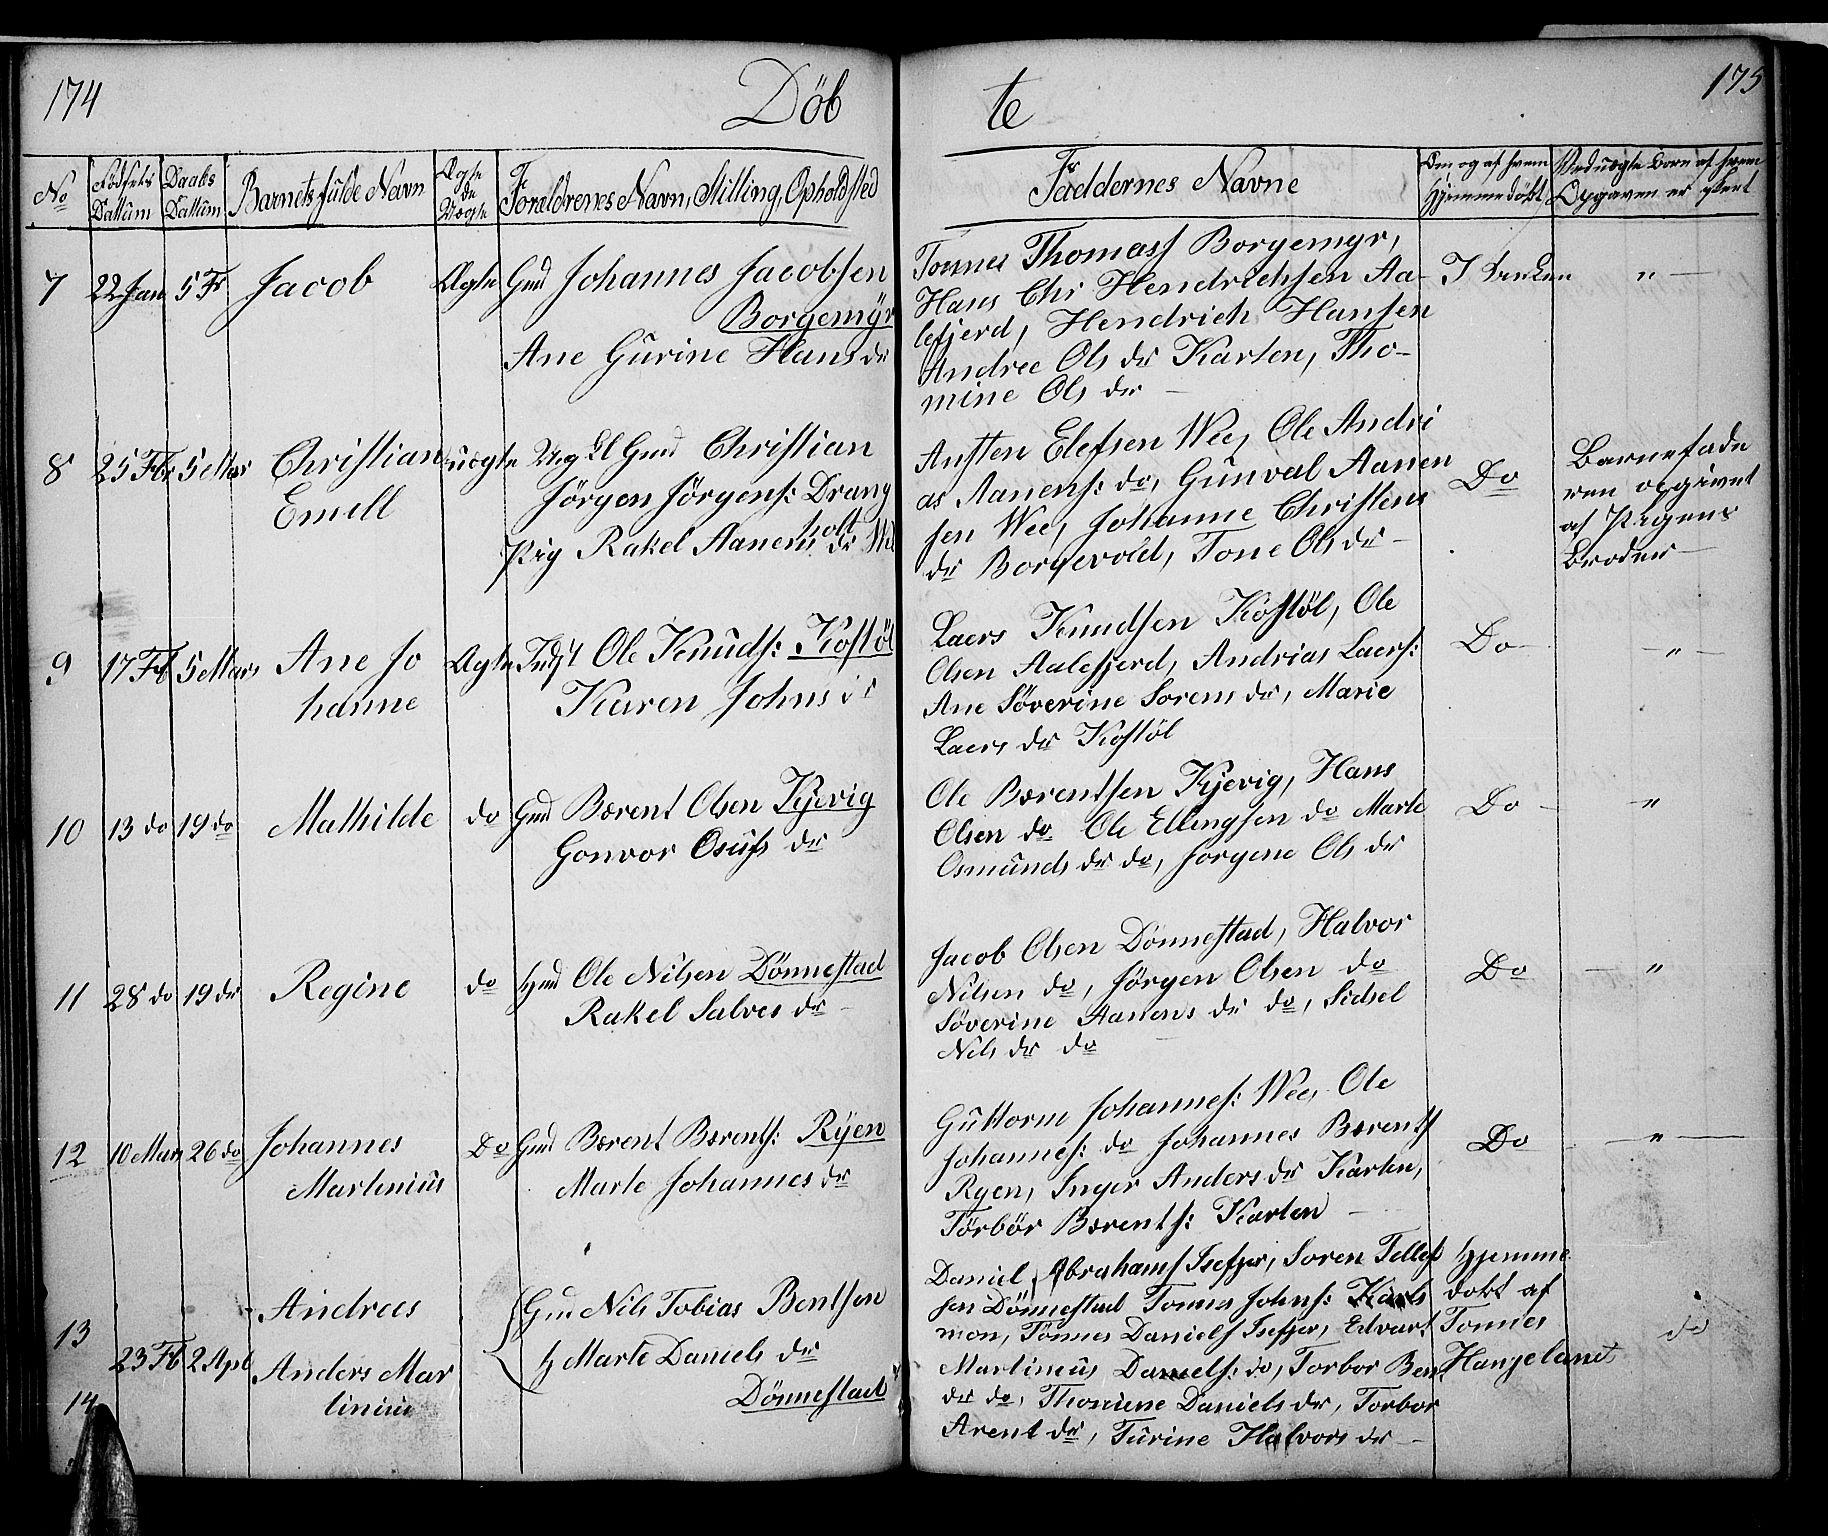 174
Döb
te
175
No
Födsels Dattum
Daabs Dattum
Barnets fulde Navn
Ægte de Uægte
Forældrenes Navn, Stilling, Opholdsted
Faddernes Navne
Om, og af hvem Hjemmedöbt
Ved uægte Børn af hvem Opgaven er skeet
7
22 Jan
5 Fr
Jacob
Ægte
Gmd Johannes Jacobsen
Borgemyr
Ane Gurine Hans dr
Tonnes Thomass Borgemyr,
Hans Chr Hendrichsen Aa-
lefjerd, Hendrich Hansen
Andree Ols dr Karten, Tho-
mine Ols dr
I Kirken
"
8
25 Fbr
5 Mar
Christian
Emill
uægte
Ung Gmd Christian
Jörgen Jörgens: Drang
holt
Pig Rakel Aanens dr We
Austen Elefsen Wee, Ole Andri
as Aanens: do, Gunval Aanen
sen Wee, Johanne Christens
dr Borgevold, Tone Ols dr
Do
Barnefade
ren opgivet
af Pigens
Broder
9
17 Feb
5 Mars
Ane Jo
hanne
Ægte
Indst Ole Knuds: Kostöl
Karen Johns dr
Laers Knudsen Kostöl, Ole
Olsen Aalefjerd, Andrias Laers:
Ane Söverine Sorens dr, Marie
Laers dr Kostöl
Do
"
10
13 do
19 do
Mathilde
do
Gmd Berent Olsen Kjevig
Gonvor Osufs dr
Ole Berentsen Kjevig, Hans
Olsen do Ole Ellingsen do Marte
Osmunds dr do, Jorgene Ols dr
Do
"
11
28 do
19 do
Regine
do
Hmd Ole Nilsen Dönnestad
Rakel Salves dr
Jacob Olsen Dönnestad, Halvor
Nilsen do, Jörgen Olsen do
Söverine Aanens dr do, Sidsel
Nils dr do
Do
"
12
10 Mars
26 do
Johannes
Martinius
Do
Gmd Berent Berents: Ryen
Marte Johannes dr
Guttorm Johannes: Wee, Ole
Johannes: do Johannes Berents
Ryen, Inger Anders dr Karten,
Törbör Berents: Karten
Do
"
13
Andrees
23 Fb
2 Apl
Anders Mar
tinius
14
Gm Nils Tobias Bentsen
h Marte Daniels dr
Dönnestad
Daniel Abrahams Isefjer, Soren Tellef
sen Dönnestad Tonnes Johns: Kals
mon, Tönnes Daniels Isefjer, Edvart
Martineus Daniels: do, Torbor Ben
dr do, Thomine Daniels dr, Torbor
Arent dr, Turine Halvors dr
Hjemme
dobt af
Tonnes
Haugeland
do